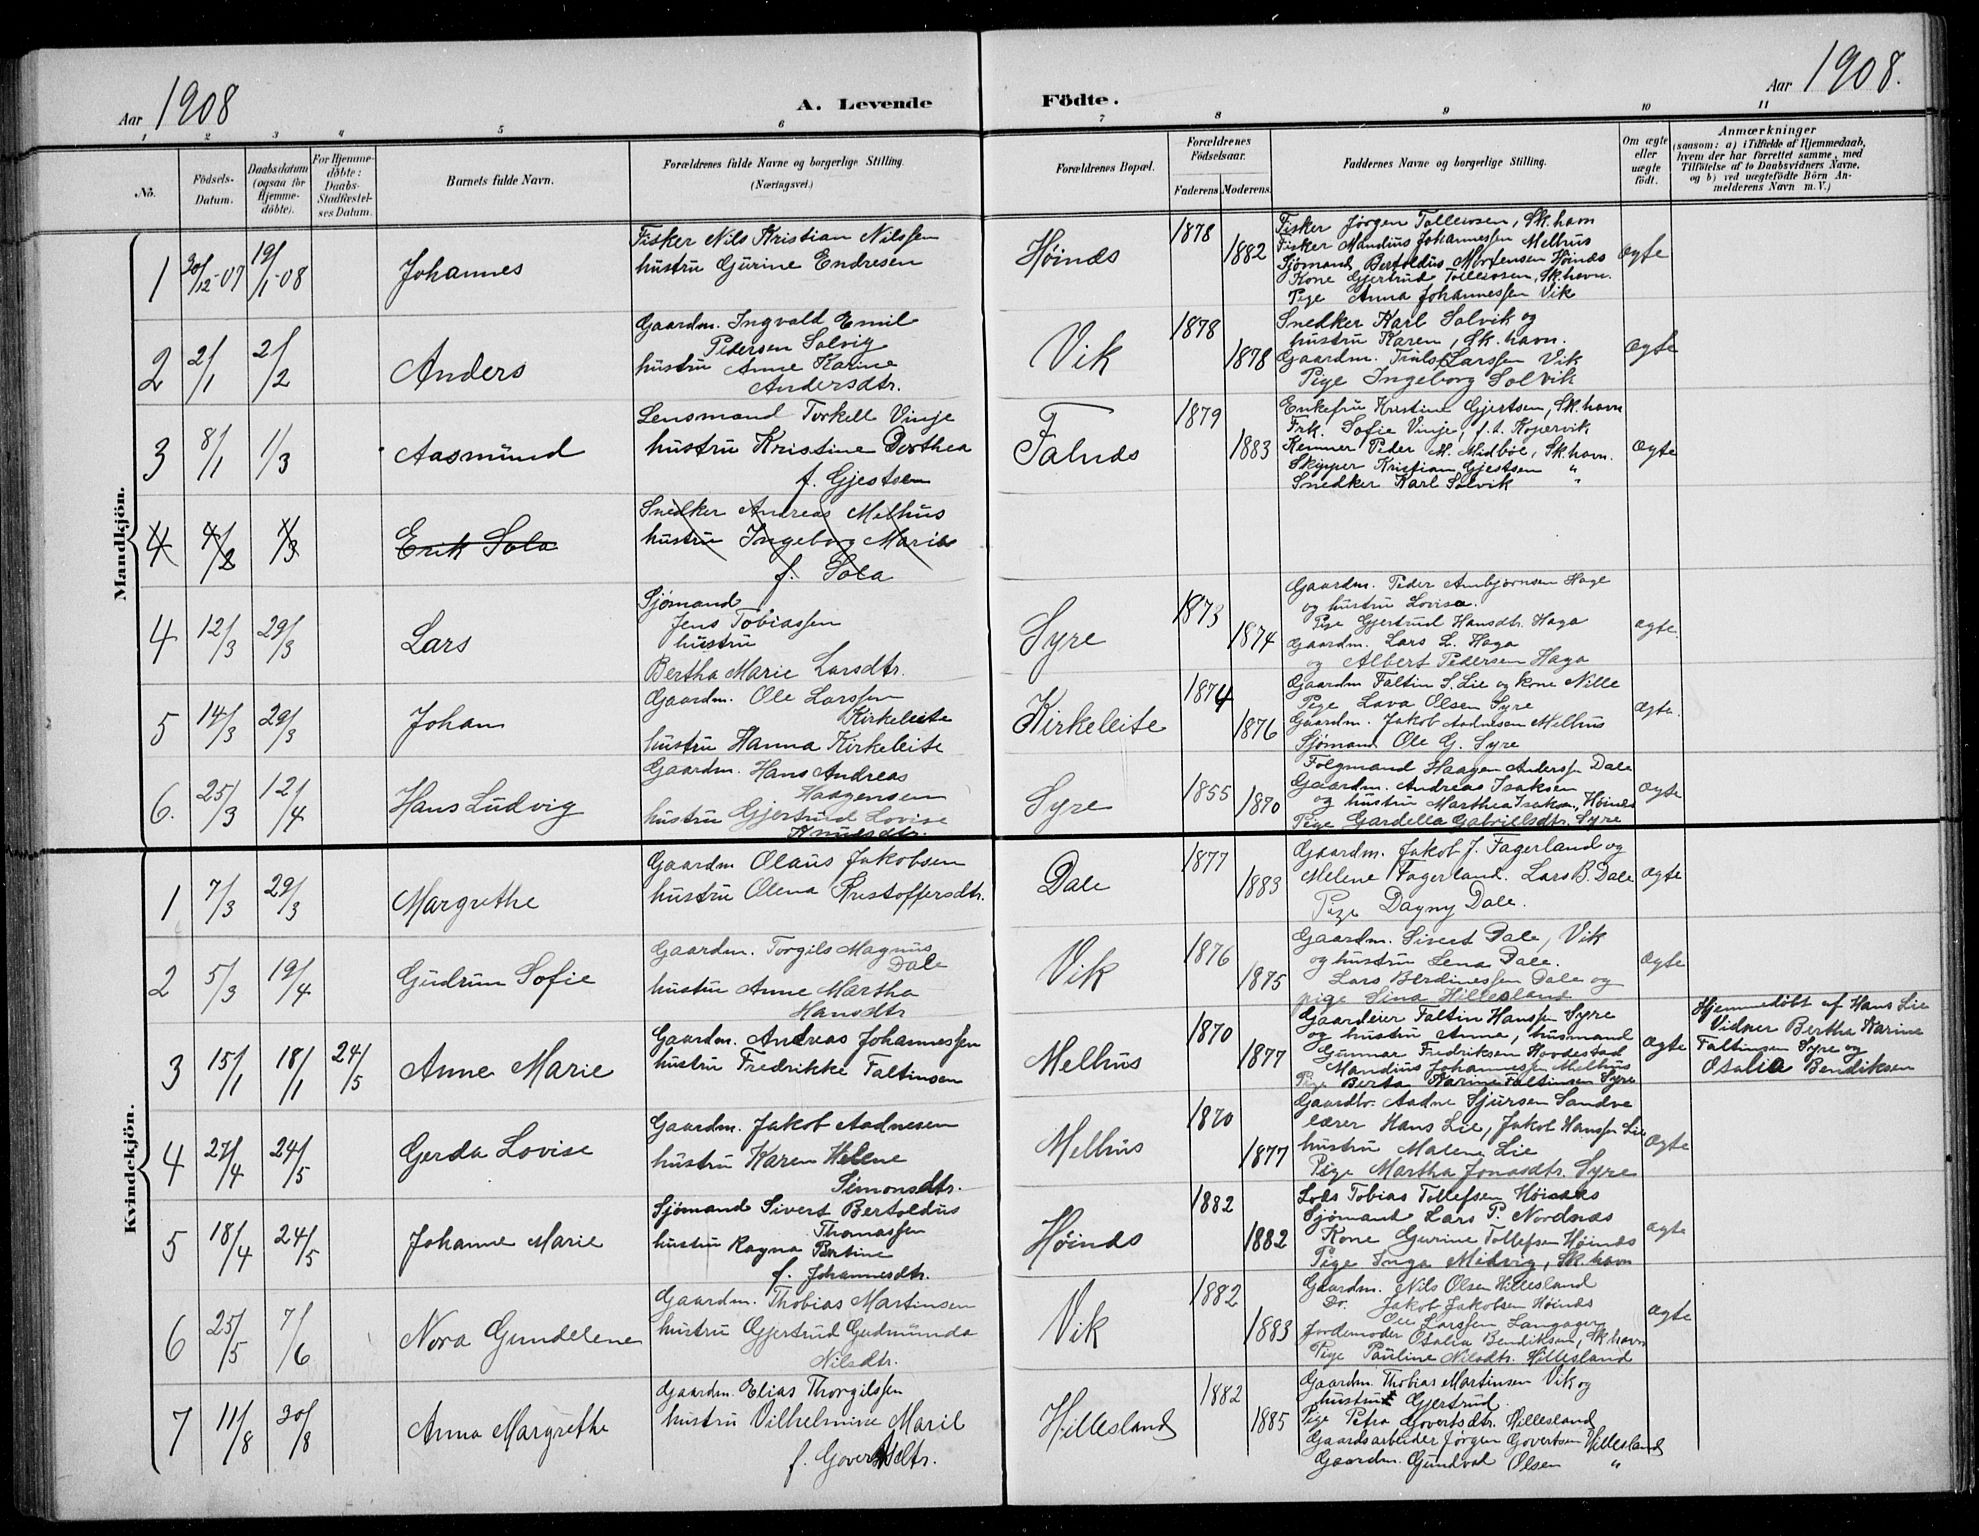 Aar 1908
A. Levende Födte.
Aar 1908.
1 2 3 4 5 6 7 8 9 10 11
No.
Födsels-Datum.
Daabsdatum (ogsaa for Hjemme-döbte).
For Hjemme-döbte: Daabs-Stadfæstel-ses Datum.
Barnets fulde Navn.
Forældrenes fulde Navne og borgerlige Stilling. (Næringsvei.)
Forældrenes Bopæl.
Forældrenes Födselsaar.
Faderens Moderens.
Faddernes Navne og borgerlige Stilling.
Om ægte eller uægte födt.
Anmærkninger
(saasom: a) i Tilfælde af Hjemmedaab, hvem der har forrettet samme, med Tilföielse af to Daabsvidners Navne. og b) ved uægtefödte Börn An-melderens Navn m.V.)
Mandkjön.
1 30/12-07 19/1-08 Johannes
Fisker Nils Kristian Nilssen
hustru Gurine Endresen
Høinæs 1878 1882
Fisker Jørgen Tolleivsen, Sk.havn
Fisker Mandius Johannessen Melhus
Sjømand Bertoldus Mortensen Høinæs
Kone Gjertrud Tolleivsen, Sk.havn.
Pige Anna Johannessen Vik
Ægte
2 2/1 2/2 Anders
Gaardm. Ingvald Emil
Pedersen Solvig
hustru Anne Karine
Andersdtr.
Vik 1878 1878
Snedker Karl Solvik og
hustru Karen, Sk.havn.
Gaardm. Truls Larssen Vik
Pige Ingeborg Solvik
Ægte
3 8/1 1/3 Aasmund
Lensmand Torkell Vinje
hustru Kristine Dorthea
f. Gjestsen
Falnæs 1879 1883
Enkefru Kristine Gjertsen, Sk.havn
Frk. Sofie Vinje, f.t. Kopervik
Kemner Peder M. Midbøe, Sk.havn.
Skipper Kristian Gjestsen "
Snedker Karl Solvik "
Ægte
4 4/2 1/3 Erik Sola
Snedker Andreas Melhus
hustru Ingeborg Marie
f. Sola
4 12/3 29/3 Lars
Sjømand
Jens Tobiassen
hustru
Bertha Marie Larsdtr.
Syre 1873 1874
Gaardm. Peder Ambjørnsen Hage
og hustru Lovisa.
Pige Gjertrud Hansdtr. Haga
Gaardm. Lars L. Haga
og Albert Pedersen Haga
Ægte.
5 14/3 29/3 Johan
Gaardm. Ole Larssen
Kirkeleite
hustru Hanna Kirkeleite
Kirkeleite 1874 1876
Gaardm Faltin S. Lie og Kone Nille
Pige Lava Olsen Syre
Gaardm. Jakob Aadnesen Melhus
Sjømand Ole G. Syre
Ægte.
6. 25/3 12/4 Hans Ludvig
Gaardm. Hans Andreas
Haagensen
hustru Gjertrud Lovise
Knudsdtr.
Syre 1855 1870
Folgmand Haagen Anderssn Dale
Gaardm. Andreas Isaksen
og hustru Marthea Isaksn., Høinæs
Pige Gardella Gabrielsdtr. Syre
Ægte
Kvindekjön.
1 7/3 29/3 Margrethe
Gaardm Olaus Jakobsen
hustru Olena Kristoffersdtr.
Dale 1877 1883
Gaardm. Jakob J. Fagerland og
Melene Fagerland. Lars B. Dale
Pige Dagny Dale.
Ægte
2 5/3 19/4 Gudrun Sofie
Gaardm. Torgils Magnus
Dale
hustru Anne Martha
Hansdtr
Vik 1876 1875
Gaardm. Sivert Dale, Vik
og hustru Lena Dale.
Lars Berdinessen Dale og
pige Sina Hillesland
Ægte
3 15/1 18/1 24/5 Anne Marie
Gaardm. Andreas Johannessen
hustru Fredrikke Faltinsen
Melhus 1870 1877
Gaardeier Faltin Hanssen Syre
og hustru Anna, husmand
Gunnar Fredriksen Hovdestad
Mandius Johannessen Melhus
Pige Berta Karine Faltinsen Syre
Ægte
Hjemmedøbt af Hans Lie
Vidner Bertha Karine
Faltinsen Syre og
Osalia Bendiksen
4 27/4 24/5 Gerda Lovise
Gaardm. Jakob Aadnesen
hustru Karen Helene
Simonsdtr.
Melhus 1870 1877
Gaardbr. Aadne Sjursen Sandve
lærer Hans Lie, Jakob Hanssen Lie
hustru Malene Lie
Pige Martha Jonasdtr. Syre
Ægte
5 18/4 24/5 Johanne Marie
Sjømand Sivert Bertoldus
Thomassen
hustru Ragna Bertine
f. Johannesdtr.
Høinæs 1882 1882
Lods Tobias Tollefsen Høinæs
Sjømand Lars P. Nordnæs
Kone Gurine Tollefsen Høinæs
Pige Inga Medvig, Sk.havn
Ægte
6 25/5 7/6 Nora Gundelene
Gaardm. Thobias Martinsen
hustru Gjertrud Gudmunda
Nilsdtr.
Vik 1882 1883
Gaardm. Nils Olsen Hillesland
Do. Jakob Jakobsen Høinæs
Ole Larssen Langager
Jordemoder Osalia Bendiksen, Sk.havn
Pige Pauline Nilsdtr. Hillesland
Ægte
7 11/8 30/8 Anna Margrethe
Gaardm. Elias Thorgilssen
hustru Vilhelmine Marie
f. Govertsdtr.
Hillesland 1882 1885
Gaardm. Thobias Martinsen Vik og
hustru Gjertrud.
Pige Petra Govertsdtr. Hillesland
Gaardsarbeider Jørgen Govertsen Hillesland
Gaardm. Gundval Olsen "